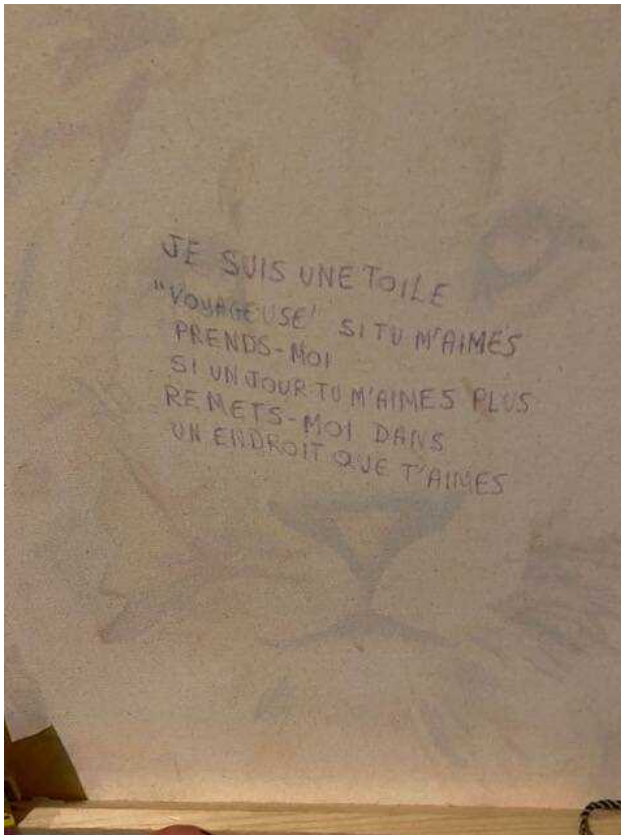 JE SUIS UNE TOILE
"VOYAGEUSE' SI TU M'AIMES
PRENDS-MOI
SI UN JOUR TU M'AIMES PLUS
REMETS-MOI DANS
UN ENDROIT QUE T'AIMES